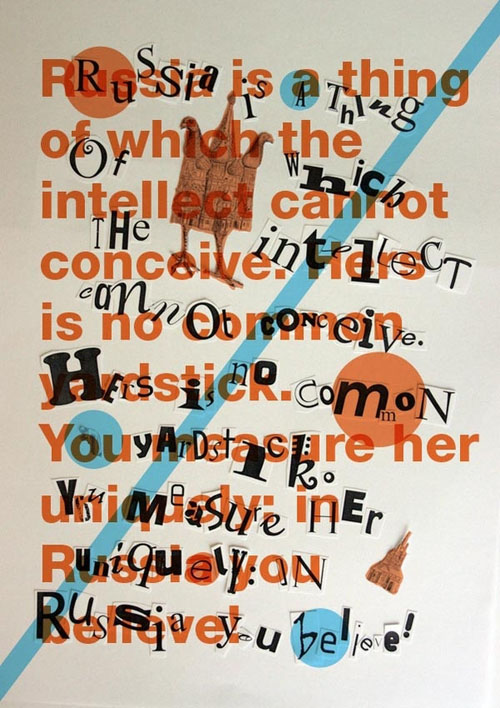 Russia is a thing
of which the
intellect cannot
conceive. Hers
is no common
yardstick.
You measure her
uniquely: in
Russia you
believe!
RuSSia iS A Thing
Of Which
THe intellECT
cannOt coNceive.
HERS is no commmoN
yARDstick.
You MeaSure HEr
uniquely: IN
RusSia you believe!